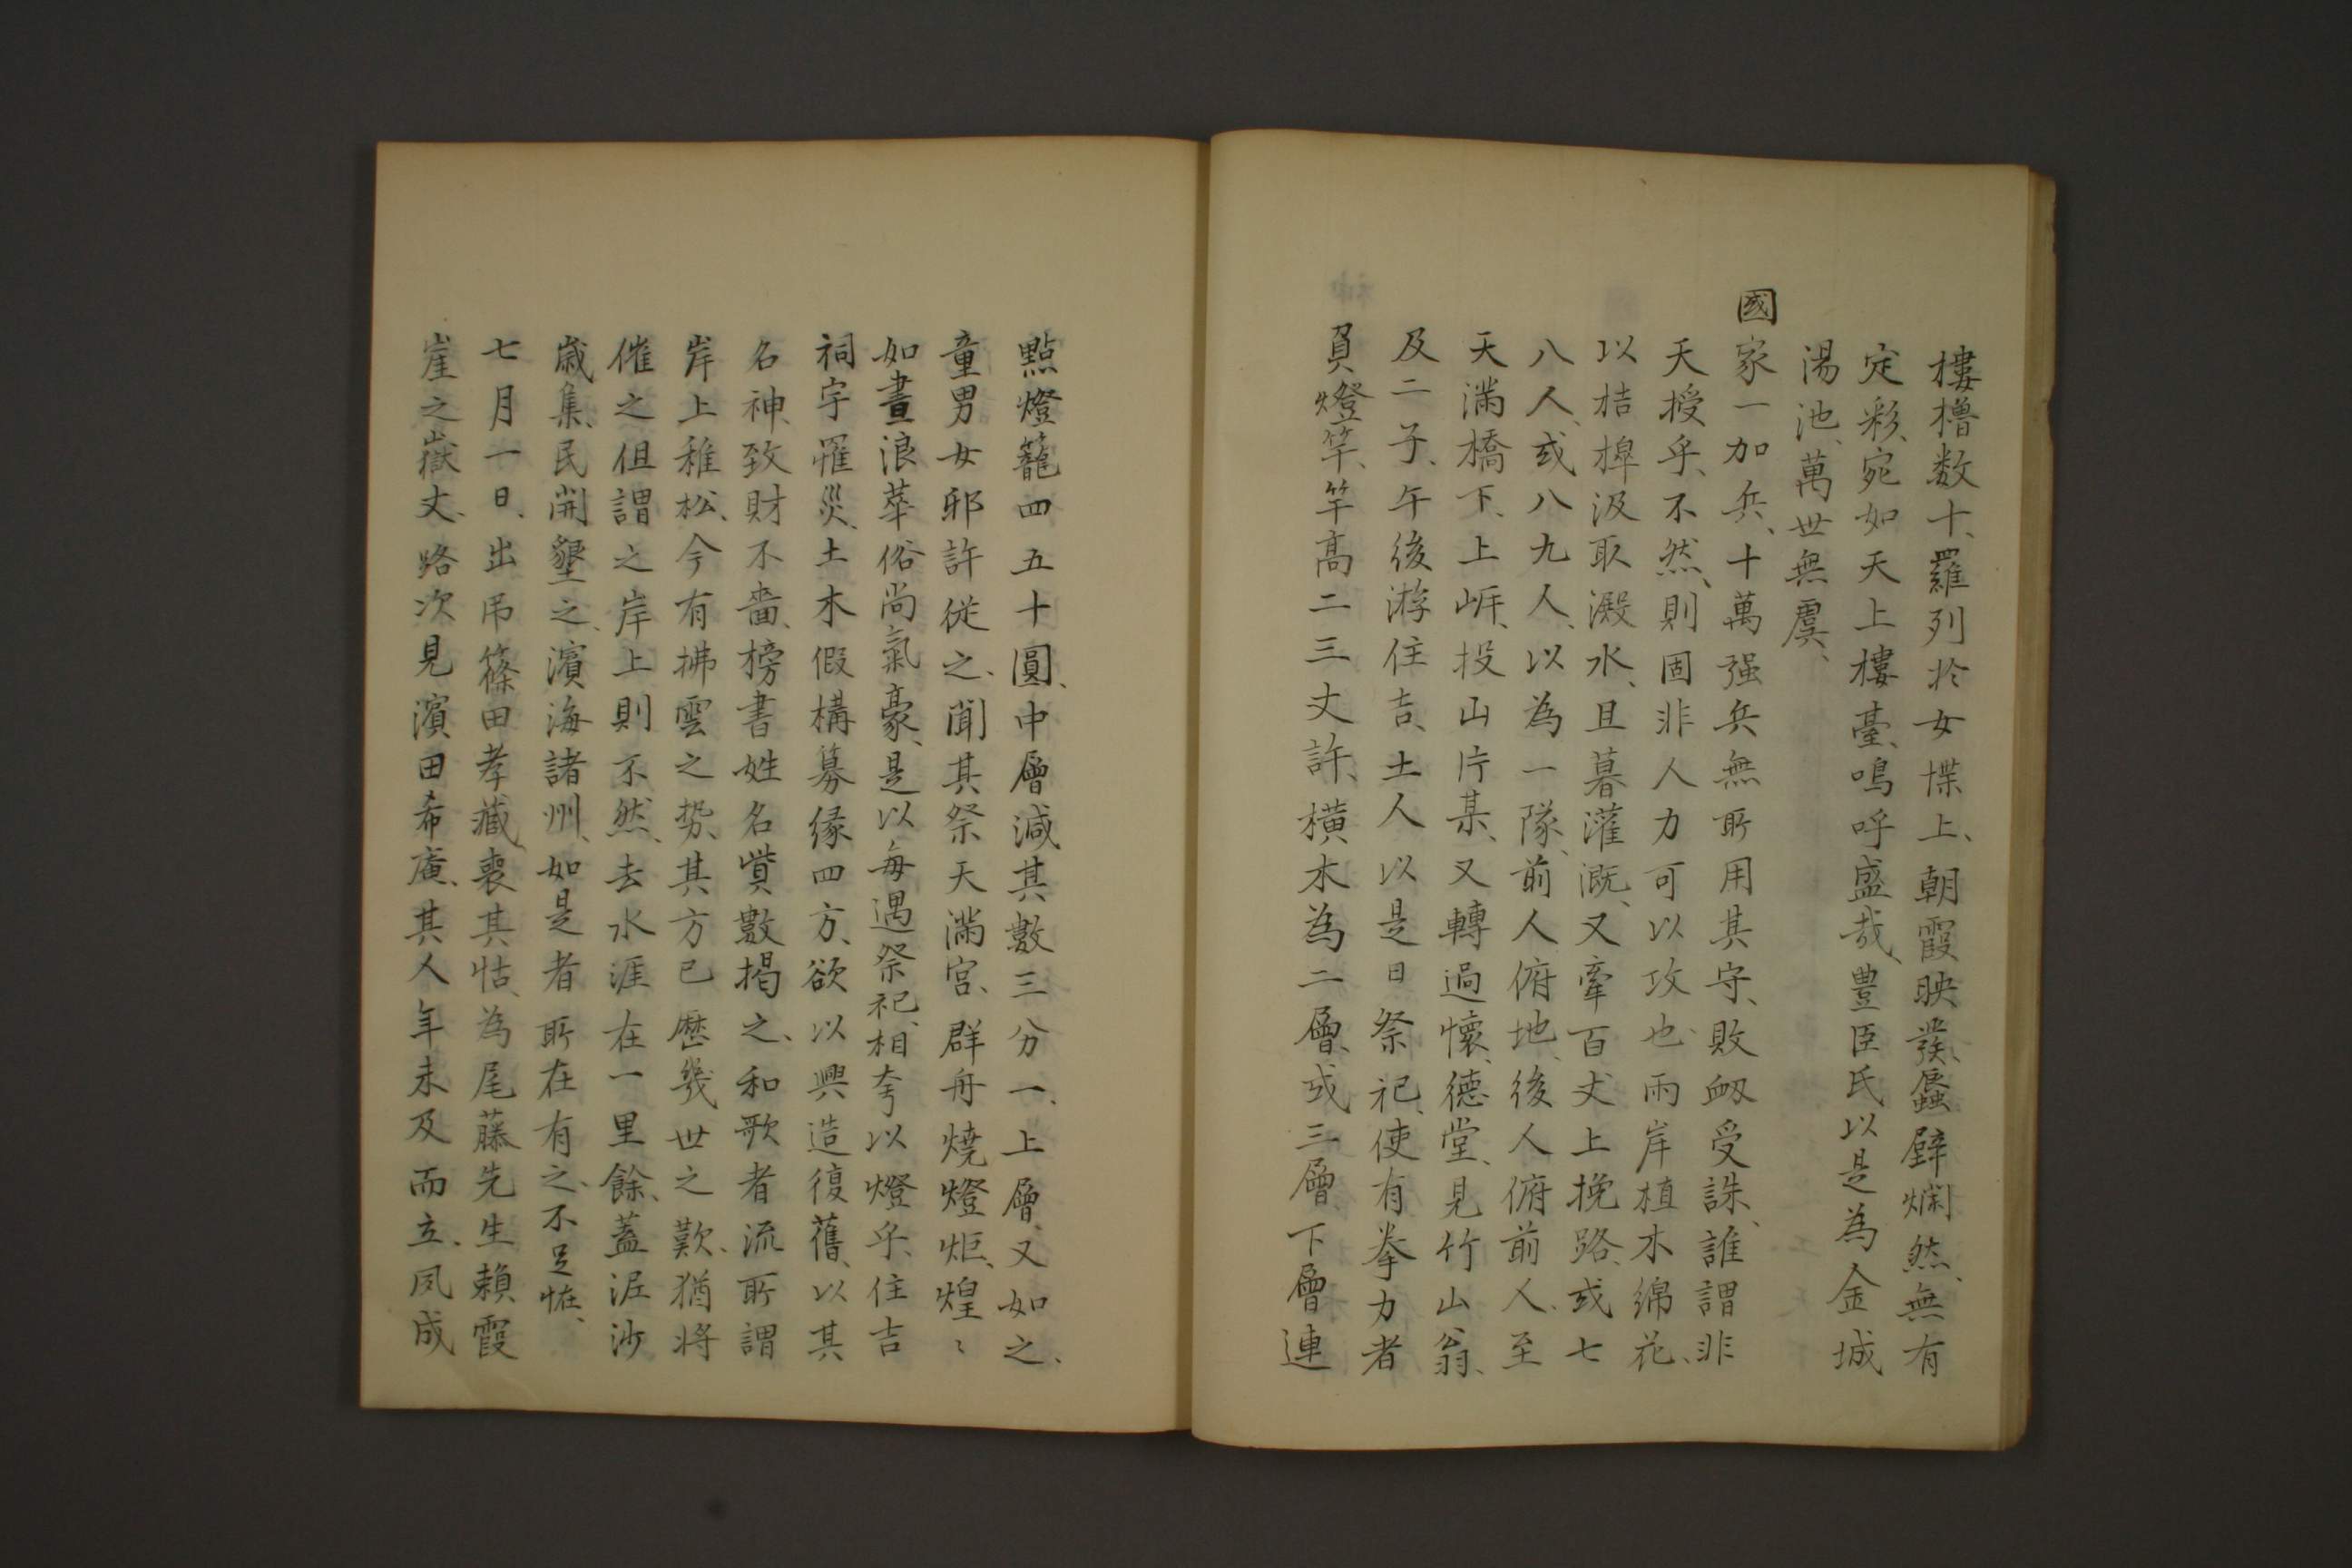 樓櫓数十、羅列於女堞上、朝霞映發、蜃壁爛然、無有
定彩、宛如天上樓臺、嗚呼盛哉、豊臣氏以是為金城
湯池、萬世無虞、
國家一加兵、十萬强兵無所用其守、敗衂受誅、誰謂非
天授乎、不然、則固非人力可以攻也、両岸植木綿花、
以桔槹汲取澱水、且暮灌漑、又牽百丈上挽路、或七
八人、或八九人、以為一隊、前人俯地、後人俯前人、至
天滿橋下、上岍、投山片某、又轉過懷德堂、見竹山翁、
及二子、午後游住吉、土人以是日祭祀、使有拳力者
負燈竿、竿高二三丈許、横木為二層、或三層、下層連
點燈籠四五十圓、中層減其數三分一、上層又如之、
童男女邪許從之、聞其祭天滿宮、群舟燒燈炬、煌〻
如晝、浪華俗尚氣豪、是以每遇祭祀、相夸以燈乎、住吉
祠宇罹災、土木假構、募緣四方、欲以興造復舊、以其
名神、致財不嗇、榜書姓名貲數揭之、和歌者流所謂
岸上稚松、今有拂雲之势、其方已歷幾世之歎、猶将
催之、但謂之岸上則不然、去水涯在一里餘、蓋泥沙
歲集、民開墾之、濱海諸州、如是者所在有之、不足恠、
七月一日、出吊篠田孝藏喪其怙、為尾藤先生賴霞
崖之嶽丈、路次見濱田希庵、其人年未及而立、夙成